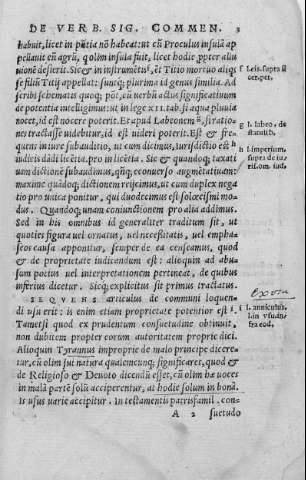 DE VERB. SIG. COMMEN. 3
habuit, licet in pñtia nõ habeat: ut cũ Proculus insulã ap
pellauit eũ agrũ, q olim insula fuit, licet hodie ꝑpter allu
uionẽ desierit. Sic & in instrumẽtis, et Titio mortuo aliqs
se filiũ Titij appellat: suntq; plurima id genus similia. Ad
scribi schematis quoq; põt, cũ uerbũ actus significatiuum
de potentia intelligimus: ut in lege XII. tab. si aqua pluuia
nocet, id est nocere poterit. Et apud Labeonem, si ratio-
nes tractasse uidebitur, id est uideri poterit. Est & fre-
quens in iure subauditio, ut cum dicimus, iurisdictio est
iudicis dãdi licẽtia, pro in licẽtia. Sic & quandoq; taxati
uam dictionẽ subaudimus, qñq; econuerso augmẽtatiuam:
maxime quãdoq; dictionem reijcimus, ut cum duplex nega
tio pro unica ponitur, qui duodecimus est solœcismi mo-
dus. Quandoq; unam coniunctionem pro alia addimus.
Sed in his omnibus id generaliter traditum sit, ut
quoties figura uel ornatus, uel necessitatis, uel empha-
seos causa apponitur, semper de ea censeamus, quod
& de proprietate iudicandum est: alioquin ad abu
sum potius uel interpretationem pertineat, de quibus
inferius dicetur. Sicq; explicitus sit primus tractatus.
SEQVENS articulus de communi loquen-
di usu erit: is enim etiam proprietate potentior est.
Tametsi quod ex prudentum consuetudine obtinuit,
non dubitem propter eorum autoritatem proprie dici.
Alioquin Tyrannus improprie de malo principe dicere-
tur, cũ olim sui natura qualemcunq; significaret, quod &
de Religioso & Deuoto dicendũ esset, cũ olim hæ uoces
in malã partẽ solũ acciperentur, at hodie solum in bonã.
Is usus uarie accipitur. In testamentis patrisfamil. con-
A 2 suetudo
f l. eis. supra si
cer. pet.
g l. labeo. de
statulib.
h l. imperium.
supra de iu
ris. om. iud.
i l. anniculus.
l. in vsu. in-
fra eod.